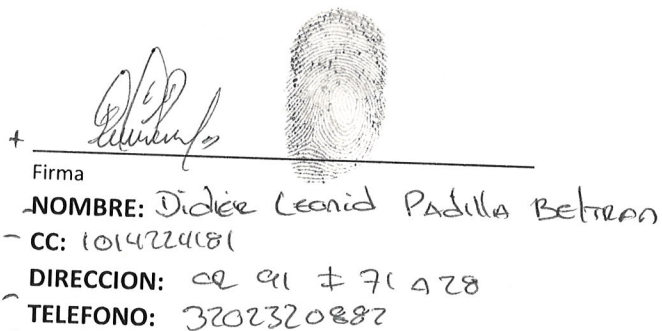 Firma
NOMBRE: Didier Leonid Padilla Beltran
CC: 1014224181
DIRECCION: CR 91 # 71 A 28
TELEFONO: 3202320882